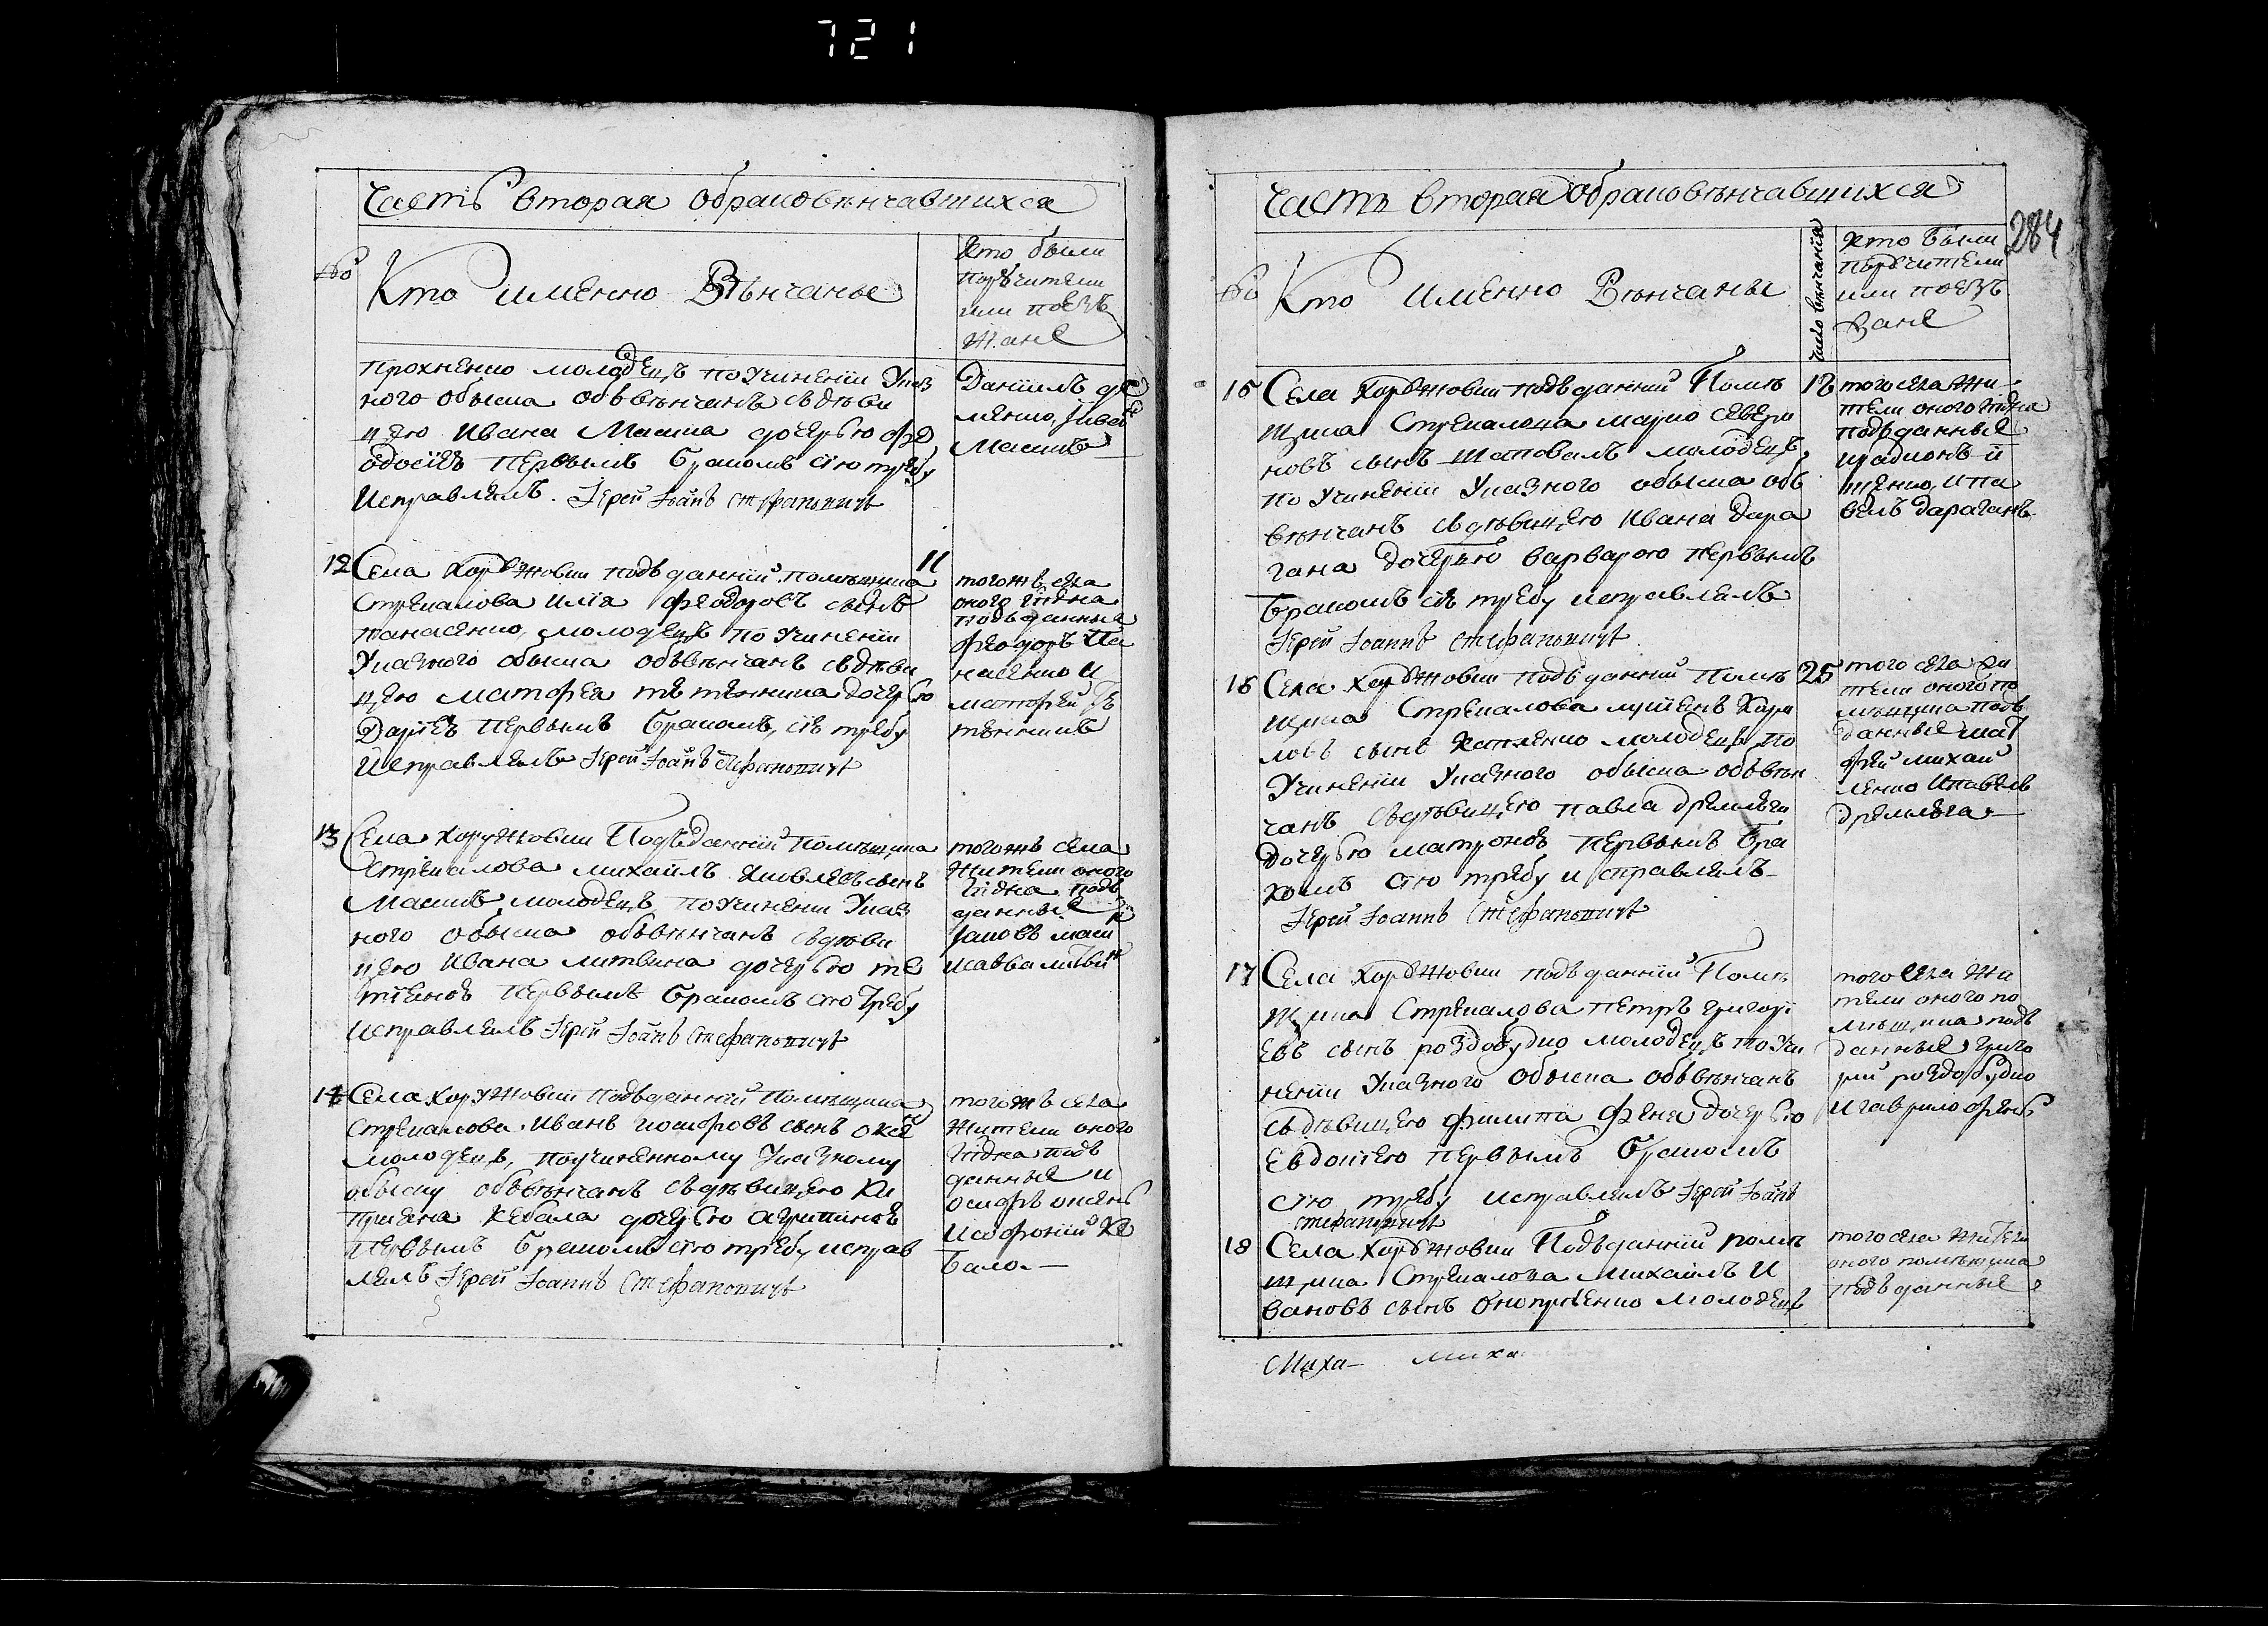 721
Часть вторая обраковѣнчавшихся
Кто именно Вѣнчаны
Кто были
порѣчители
или поезъ
жане
прохненко молодецъ поучиненіи Указ
ного обыска объвѣнчанъ съдѣви
цею Ивана Масика дочерью
Ѳеодосіею первымъ бракомъ сію требу
Исправлялъ Іерей Іоаннъ Стефановичъ
Даніилъ
Иванъ
Масикъ
12 Села Хоружовки подъданній помѣщика
Стрекалова Илія Феодоровъ сынъ
панасенко, молодецъ по учиненіи
Указного обыска объвѣнчанъ съдѣви
цею Матфея тетенника дочерью
Даріею первымъ бракомъ, сію требу
Исправлялъ Іерей Іоаннъ Стефановичъ
11
тогожъ села
оного
подъданные
феодоръ Па
насенко и
матфей те
тенникъ
13 Села Хоружовки Подъданній помѣщика
Стрекалова михаилъ яковлевъ сынъ
Масикъ молодецъ поучинени Указ
ного обыска объвѣнчанъ съдѣви
цею Ивана литвина дочерью те
тіяною первымъ бракомъ сію требу
исправлялъ Іерей Іоаннъ Стефановичъ
тогожъ села
жители оного
подъ
данные
яковъ маси
исавва литвин
14 Села Хоружовки подъданній Помѣщика
Стрекалова Иванъ иосифовъ сынъ
молодецъ, поучиненному Указному
обыску объвѣнчанъ съдѣвицею Ки
пріяна Кебала дочерью агрипиною
первымъ бракомъ сію требу исправ
лялъ Іерей Іоаннъ Стефановичъ
тогожъ села
жители оного
подъ
данные и
осифъ
Исофоній Ке
бало
Часть вторая обраковѣнчавшихся
284
Кто именно Вѣнчаны
число вѣнчанія
кто были
порѣчители
или поезъ
зане
15 Села Хоружовки подъданній Помѣ
щика Стрекалова марко севери
новъ сынъ шаповалъ молодецъ,
по учиненіи Указного обыска объ
вѣнчанъ съдѣвицею Ивана Дара
гана дочерью варварою первымъ
бракомъ сію требу исправлялъ
Іерей Іоаннъ Стефановичъ
того села жи
тели оного
подъданные
ипа
велъ дараганъ
16 Села Хоружовки подъданній Помѣ
щика Стрекалова лукіянъ Кари
ловъ сынъ молодецъ по
Учиненіи Указного обыска объвѣн
чанъ съдѣвицею павла дремлюги
дочерью матроною первымъ бра
комъ сію требу исправлялъ
Іерей Іоаннъ Стефановичъ
25
того села жи
тели оного по
мѣщика подъ
данные мат
фей михай
ленко Ипавелъ
дремлюга
17 Села Хоружовки подъданній Помѣ
щика Стрекалова петръ григори
евъ сынъ роздобудко молодецъ поучи
нении Указного обыска объвѣнчанъ
съдѣвицею филипа феня дочерью
Евдокіею первымъ бракомъ
сію требу исправлялъ Іерей Іоаннъ
Стефановичъ
того села жи
тели оного по
мѣщика подъ
данные григо
рий роздобудко
Игаврило фень
18 Села Хоружовки Подъданній помѣ
щика Стрекалова Михаилъ И
вановъ сынъ онопріенко молодецъ
того села жители
оного помѣщика
подъданные
Миха— миха